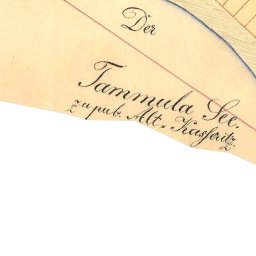 Der
Tammula See.
zu pub. Alt-Kasseritz